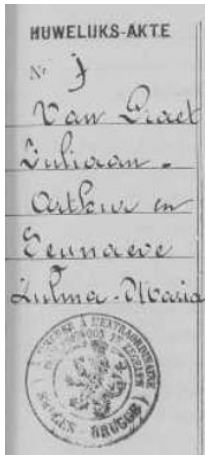 HUWELIJKS-AKTE
Nr 7
Van Praet
Juliaan -
Arthur en
Eeunaeve
Zulma-Maria
BRUGES - BRUGGE